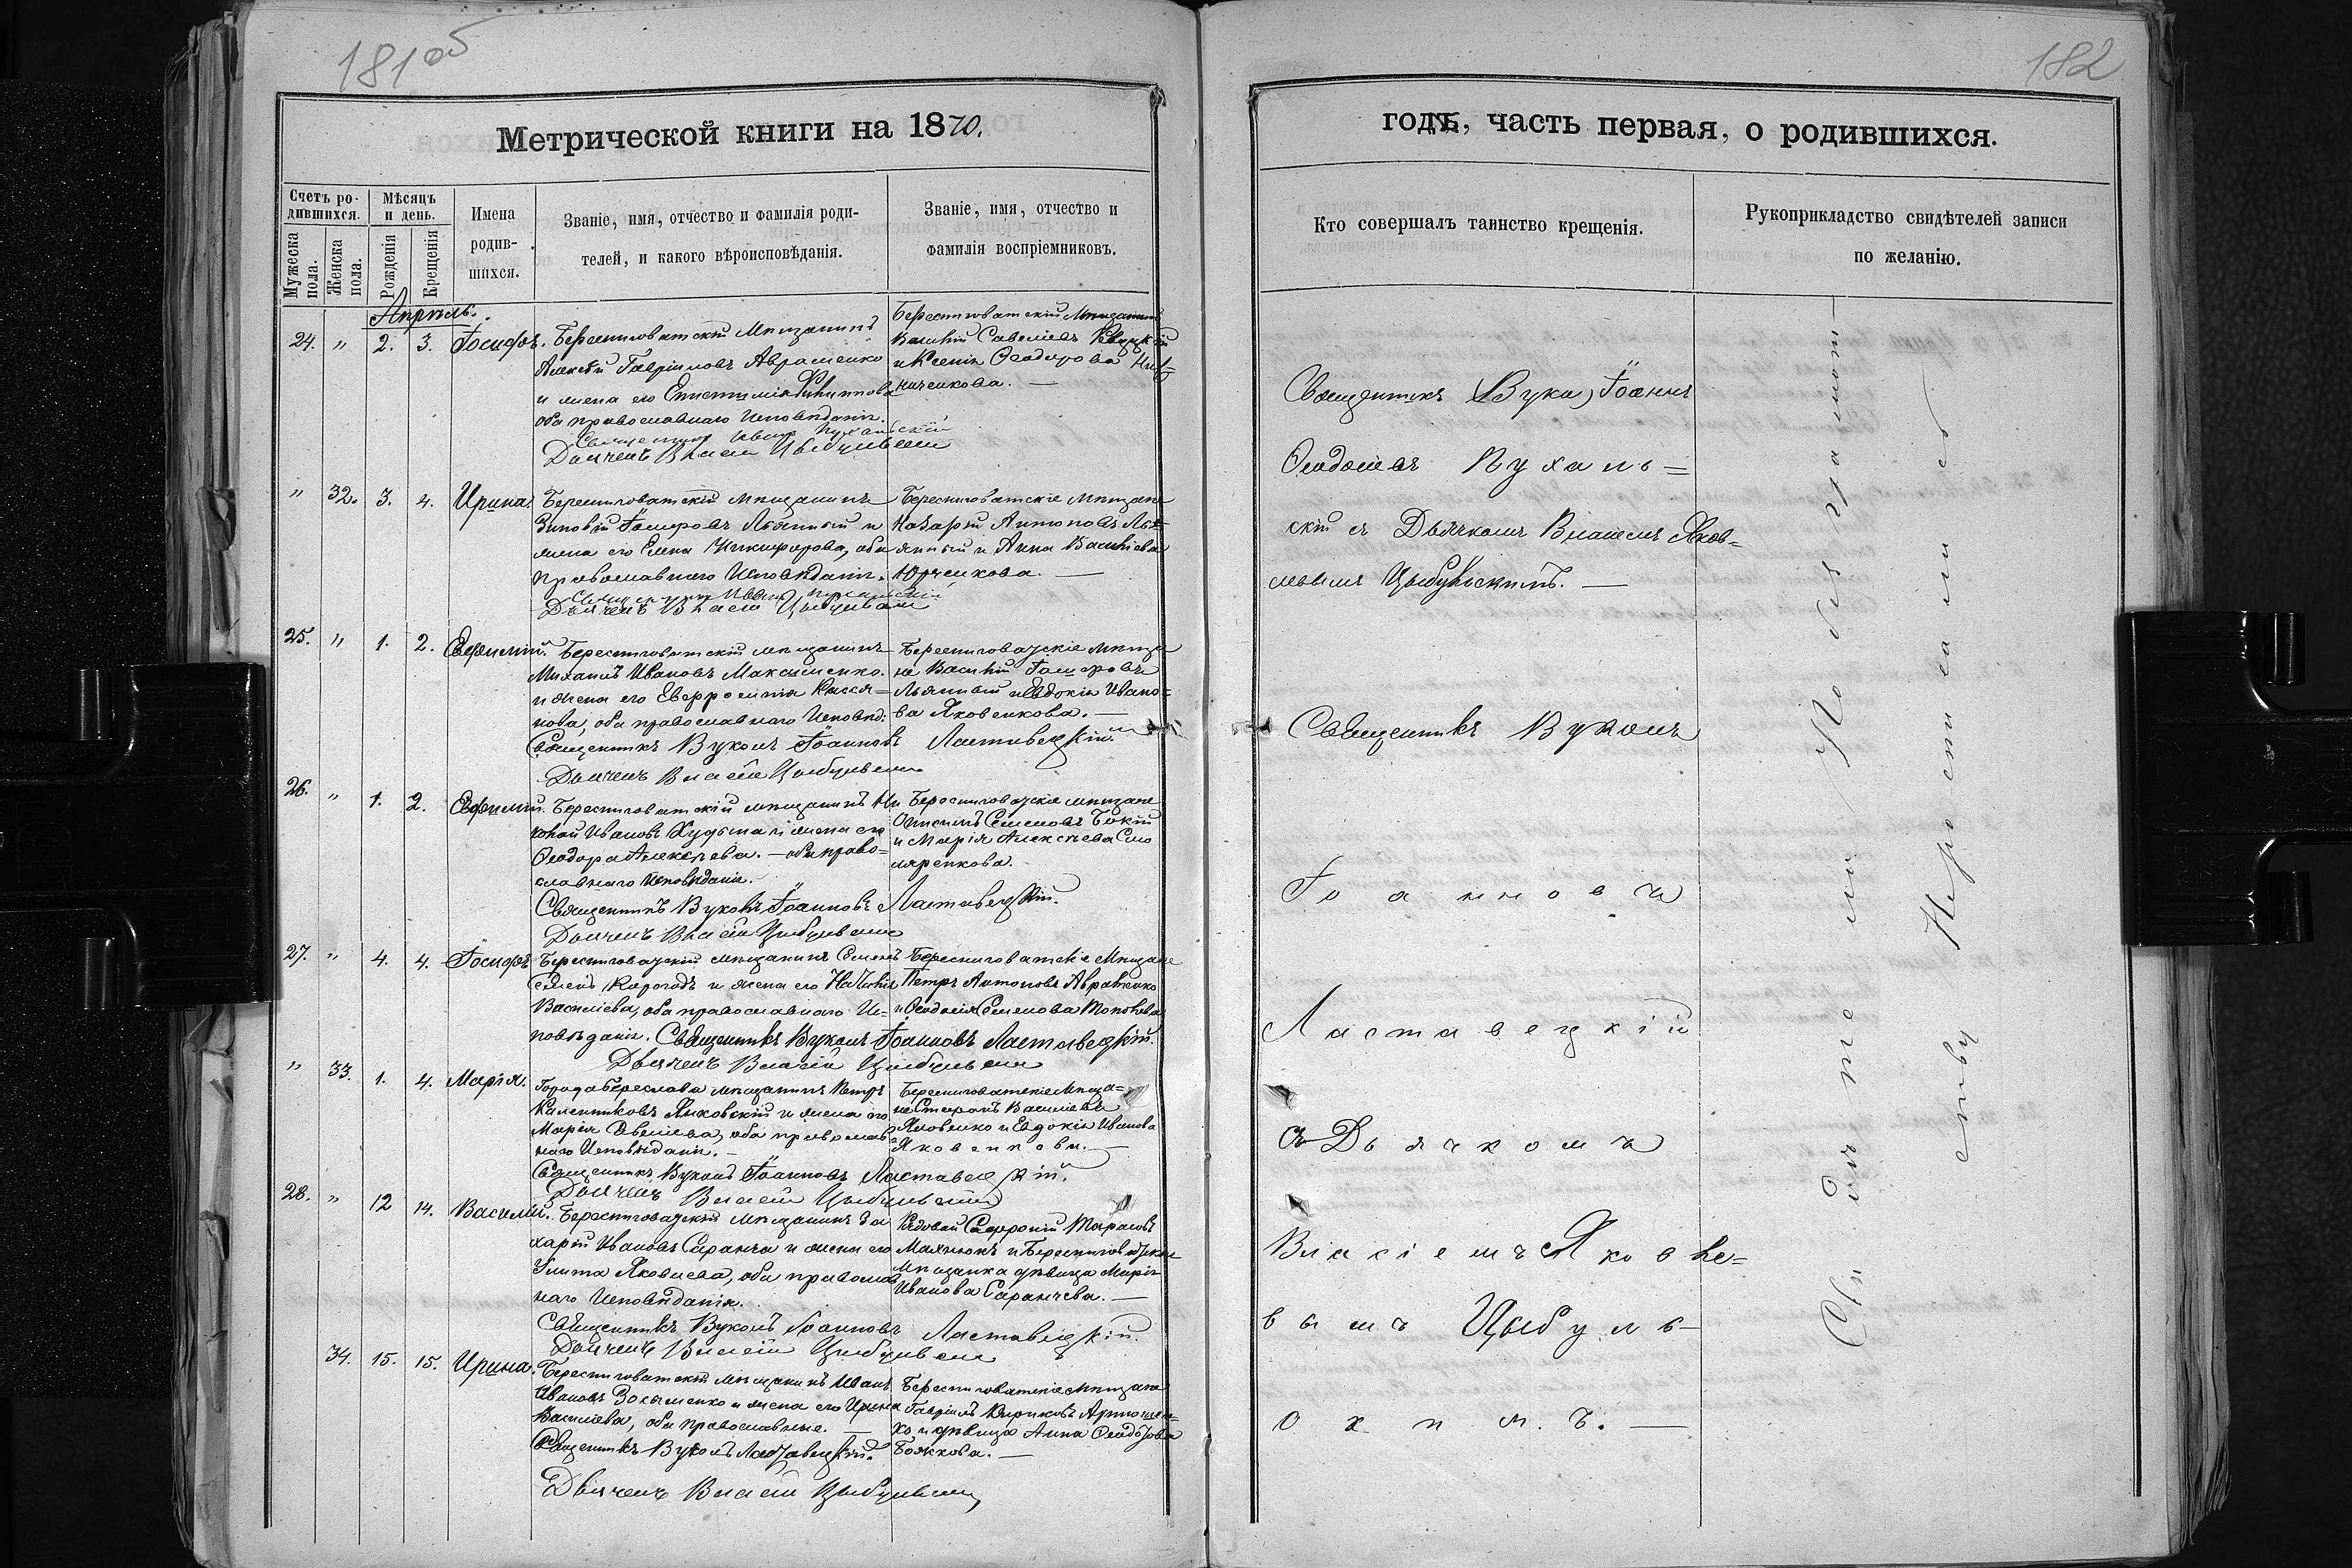 181об
182
Метрической книги на 1870.
годъ, часть первая, о родившихся.
Счетъ ро-
дившихся.
Мужеска
пола.
Женска
пола.
Мѣсяцъ
и день.
Рожденія
Крещенія
Имена
родив-
шихся.
Званіе, имя, отчество и фамилія роди-
телей, и какого вѣроисповѣданія.
Званіе, имя, отчество и
фамилія воспріемниковъ.
Кто совершалъ таинство крещенія.
Рукоприкладство свидѣтелей записи
по желанію.
Апрѣль.
24. " 2. 3. Іосифъ.
Берестоватскій Мѣщанинъ
Алексѣй Гавріиловъ Авраменко
и жена его Епистимія Филиппова
оба православнаго Исповѣданія.
Дьячекъ Власій Цыбульскій
Берестоватскій Мѣщанинъ
Василій Савеліевъ
и Ксенія Ѳеодорова
" 32. 3. 4. Ирина.
Берестоватскій мѣщанинъ
Зиновій Іосифовъ Льянный и
жена его Елена Никифорова, оба
Православнаго Исповѣданія.
Дьячекъ Власій Цыбульскій
Берестоватскіе мѣщане
Назарій Антоновъ Ль=
янный и Анна Васильева
Юрченкова. —
25. " 1. 2. Евфимій.
Берестоватскій мѣщанинъ
Михаилъ Ивановъ Максименко.
и жена его Евфросинія Касія=
нова, оба православнаго Исповѣд:
Священникъ Вуколъ Іоанновъ Ластавецкій.
Дьячекъ Власій Цыбульскій
Берестоватскіе мѣща
не Василій Іосифовъ
Льянный и Евдокія Ивано=
ва Яковенкова. —
26. " 1. 2. Евфимій.
Берестоватскій мѣщанинъ Ни
колай Ивановъ и жена его
Ѳеодора Алексѣева. — оба право=
славнаго исповѣданія.
Священникъ Вуколъ Іоанновъ Ластавецкій.
Дьячекъ Власій Цыбульскій
Берестоватскіе мѣщане
Онисимъ Семеновъ Бокій
и Марія Алексѣева Сто
ляренкова.
27. " 4. 4. Іосифъ
Берестоватскій мѣщанинъ Семенъ
Корогодъ и жена его Наталія
Василіева, оба православнаго Ис=
повѣданія. Священникъ Вуколъ Іоанновъ Ластавецкій.
Дьячекъ Власій Цыбульскій
Берестоватскіе Мѣщане
Петръ Антоновъ Авраменко
и Ѳеодосія Семенова
" 33. 1. 4. Марія.
Города Береслава мѣщанинъ Петръ
Янковскій и жена его
Марія оба православ
наго Исповѣданія. —
Священникъ Вуколъ Іоанновъ Ластавецкій.
Дьячекъ Власій Цыбульскій
Берестоватскіе Мѣща=
не Стефанъ Василіевъ
Яковенко и Евдокія Иванова
Яковенкова. —
28. " 12 14. Василій.
Берестоватскій Мѣщанинъ За
харій Ивановъ Саранча и жена его
Улита Яковлева, оба православ
наго Исповѣданія.
Священникъ Вуколъ Іоанновъ Ластавецкій.
Дьячекъ Власій Цыбульскій
Рядовой Софроній Тарасовъ
и Берестоватская
мѣщанка дѣвица Марія
Иванова Саранчева. —
34. 15. 15. Ирина.
Берестоватскій мѣщанинъ Иванъ
Ивановъ Зосименко и жена его Ирина
Василіева, оба православные. —
Священникъ Вуколъ Ластавецкій.
Дьячекъ Власій Цыбульскій
Берестоватскіе мѣщане
Гавріилъ Кириковъ Артюшен=
ко и дѣвица Анна
Божкова. —
Священникъ Іоаннъ
Ѳеодосіевъ Пухаль=
скій съ Дьячкомъ Власіемъ Яков=
левымъ Цыбульскимъ. —
Священникъ Вуколъ
Іоанновъ
Ластавецкій
съ Дьячкомъ
Власіемъ Яковле=
вымъ Цыбуль-
скимъ. —
Свидѣтели по безграмот-
ству не росписались